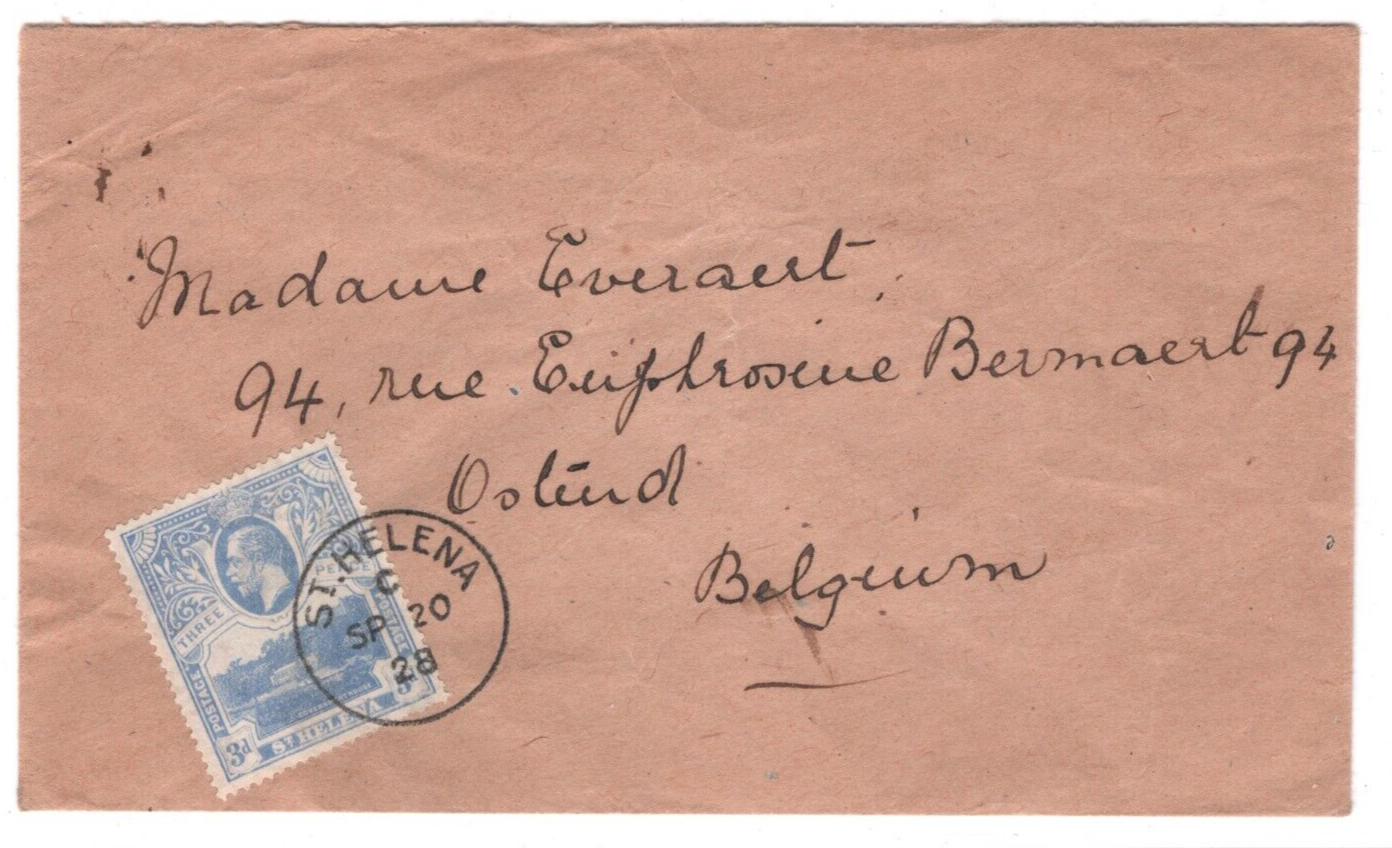 Madame Everaert,
94, rue Euphrosine Bermaert 94
Ostend
Belgium
THREE PENCE
POSTAGE POSTAGE
3d ST HELENA 3d
ST. HELENA
C
SP 20
28